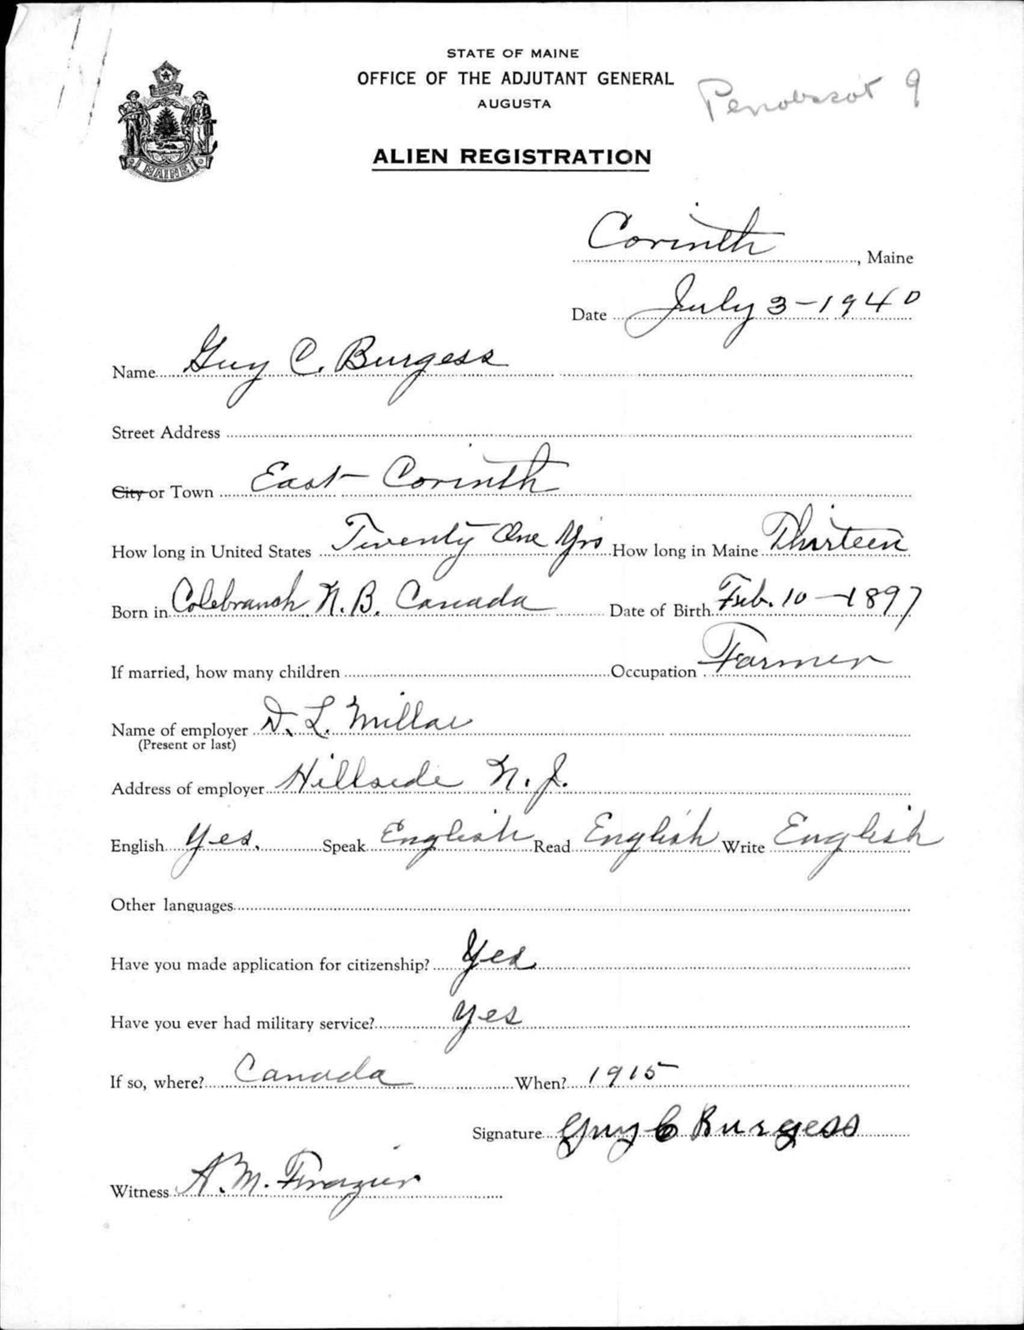 STATE OF MAINE
OFFICE OF THE ADJUTANT GENERAL
AUGUSTA
Penobscot 9
MAINE
ALIEN REGISTRATION
Corinth, Maine
Date July 3-1940
Name Guy C. Burgess
Street Address
City or Town East Corinth
How long in United States Twenty One Yrs How long in Maine Thirteen
Born in Colebranch N.B. Canada Date of Birth Feb. 10-1897
If married, how many children Occupation Farmer
Name of employer D. L. Millar
(Present or last)
Address of employer Hillside N.J.
English Yes. Speak English Read English Write English
Other languages
Have you made application for citizenship? Yes
Have you ever had military service? Yes
If so, where? Canada When? 1915
Signature Guy C Burgess
Witness A.M. Frazier